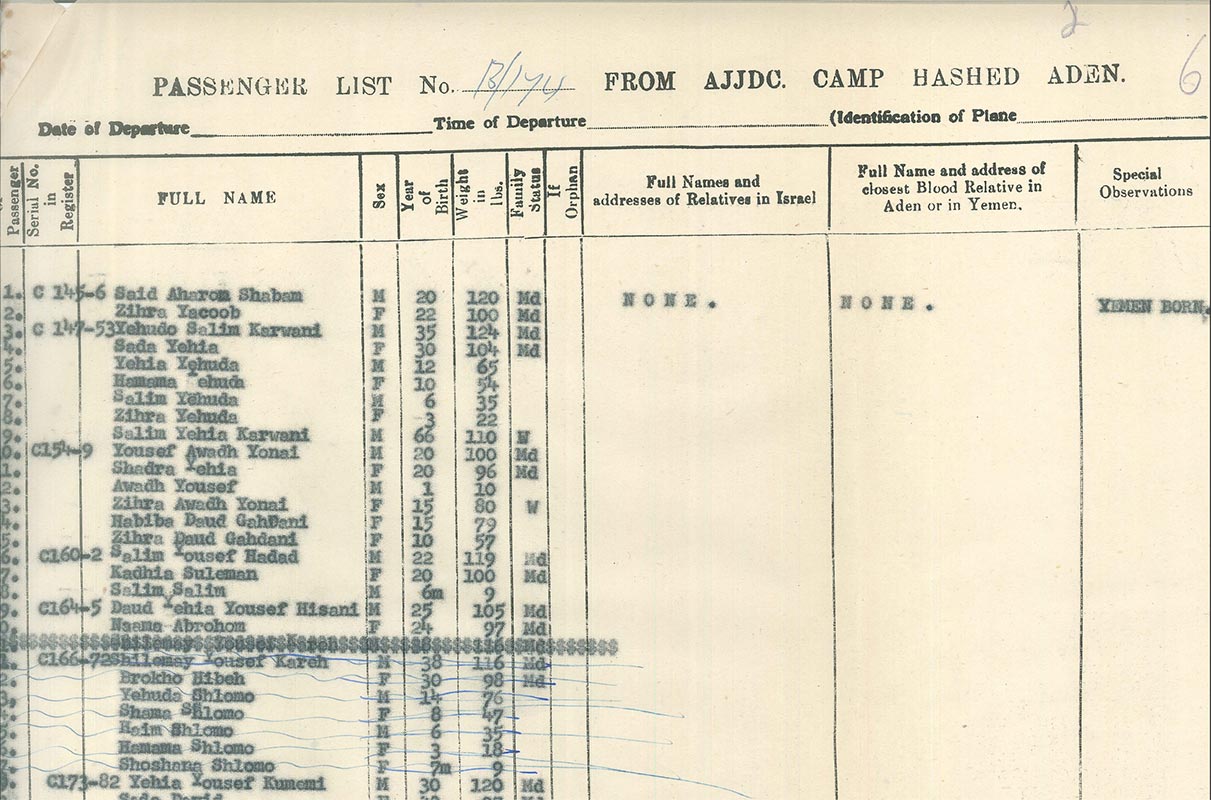 2
6
PASSENGER LIST No. B/174 FROM AJJDC. CAMP HASHED ADEN.
Date of Departure Time of Departure (Identification of Plane
Passenger Serial No. in Register FULL NAME Sex Year of Birth Weight in lbs. Family Status If Orphan Full Names and addresses of Relatives in Israel Full Name and address of closest Blood Relative in Aden or in Yemen. Special Observations
1. C 145-6 Said Aharom Shabam M 20 120 Md NONE. NONE. YEMEN BORN.
2. Zihra Yacoob F 22 100 Md
3. C 147-53 Yehudo Salim Karwani M 35 124 Md
4. Sada Yehia F 30 104 Md
5. Yehia Yehuda M 12 65
6. Hamama ehuda F 10 54
7. Salim Yehuda M 6 35
8. Zihra Yehuda F 3 22
9. Salim Yehia Karwani M 66 110 W
0. C154-9 Yousef Awadh Yonai M 20 100 Md
1. Shadra Yehia F 20 96 Md
2. Awadh Yousef M 1 10
3. Zihra Awadh Yonai F 15 80 W
4. Habiba Daud Gahdani F 15 79
5. Zihra Daud Gahdani F 10 57
6. C160-2 Salim Yousef Hadad M 22 119 Md
7. Kadhia Suleman F 20 100 Md
8. Salim Salim M 6m 9
9. C164-5 Daud Yehia Yousef Hisani M 25 105 Md
0. Naama Abrohom F 24 97 Md
1. C166-72 Shilomay Yousef Kareh M 38 116 Md
2. Brokho Hibeh F 30 98 Md
3. Yehuda Shlomo M 14 76
4. Shama Shlomo F 8 47
5. Haim Shlomo M 6 35
6. Hamama Shlomo F 3 18
7. Shoshana Shlomo F 7m 9
8. C173-82 Yehia Yousef Kumemi M 30 120 Md